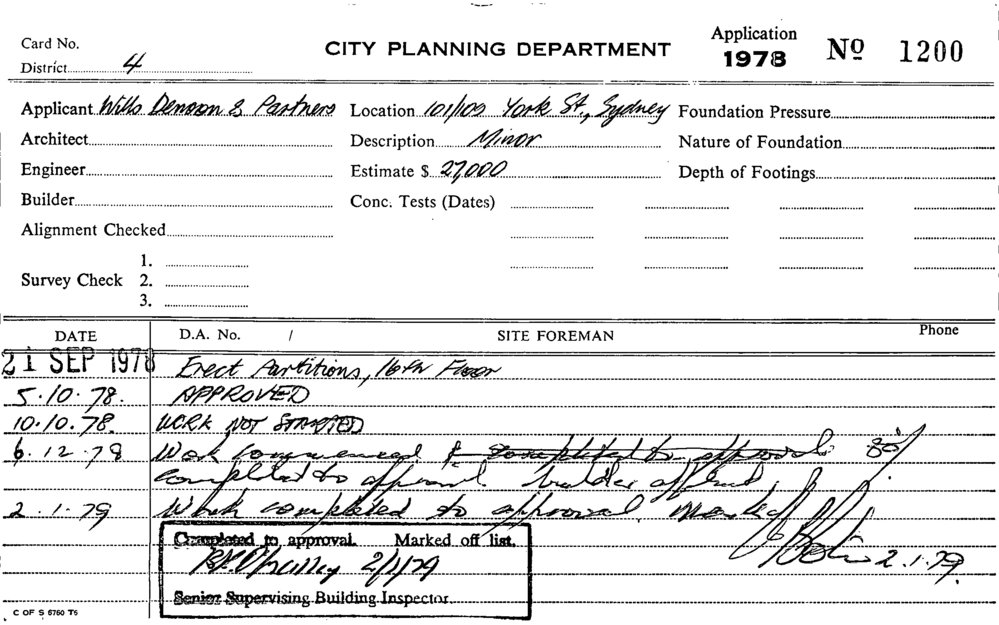 Card No.
CITY PLANNING DEPARTMENT
Application
1978
Nº 1200
District 4
Applicant Wills Denoon & Partners Location 101/109 York St., Sydney Foundation Pressure
Architect Description Minor Nature of Foundation
Engineer Estimate $ 27,000 Depth of Footings
Builder Conc. Tests (Dates)
Alignment Checked
1.
Survey Check 2.
3.
DATE D.A. No. / SITE FOREMAN Phone
21 SEP 1978 Erect Partitions, 16th Floor
5.10.78. APPROVED
10.10.78. WORK NOT STARTED
6.12.78 Work commenced & completed to approval 80%
completed to approval builder
2.1.79 Work completed to approval Marked
2.1.79.
Completed to approval. Marked off list.
2/1/79
Senior Supervising Building Inspector
C OF S 6760 T6